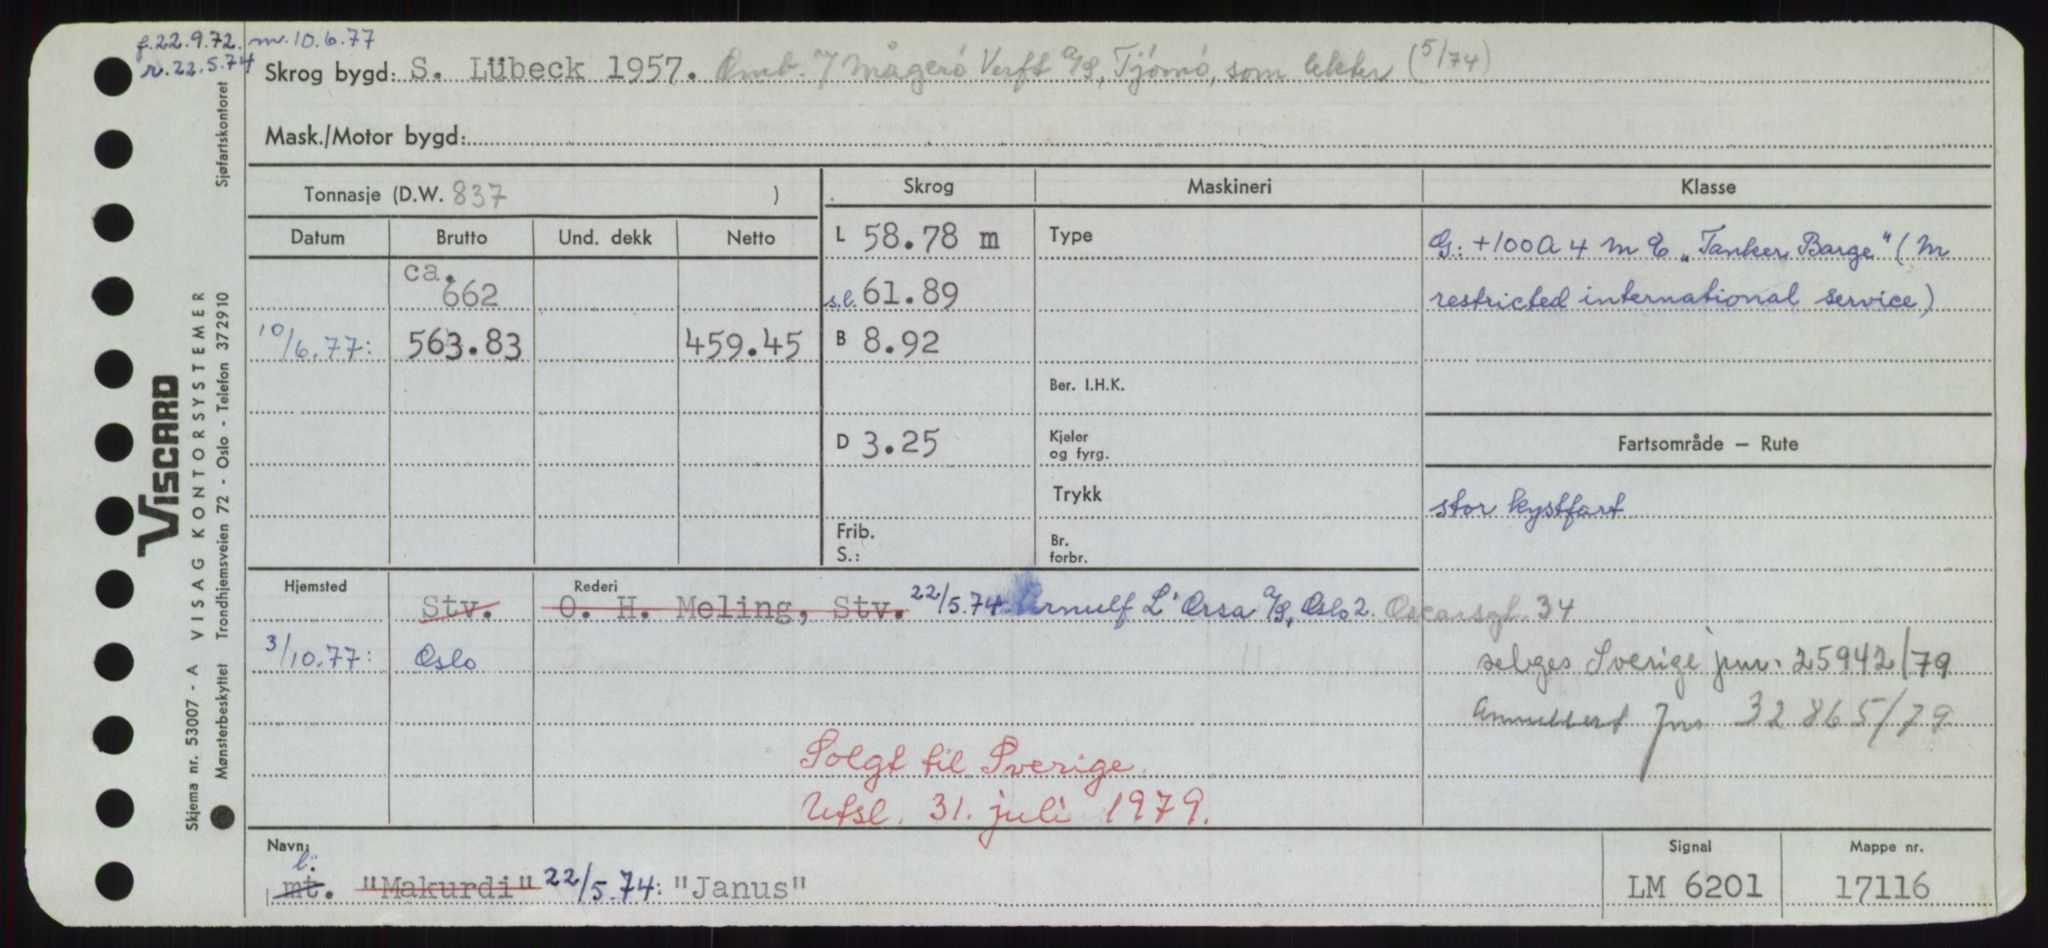 f.22.9.72. m.10.6.77
r.22.5.74
Skrog bygd: S. Lübeck 1957. Omb. v/ Mågerø Verft a/s, Tjömö, som lekter (5/74)
Mask./Motor bygd:
Tonnasje (D.W. 837 )
Skrog
Maskineri
Klasse
Datum
Brutto
Und. dekk
Netto
ca. 662
10/6.77: 563.83 459.45
L 58.78 m
s.l. 61.89
B 8.92
D 3.25
Frib.
S.:
Type
Ber. I.H.K.
Kjeler
og fyrg.
Trykk
Br.
forbr.
G: +100A 4 m E „Tanker Barge" ( M
restricted international service)
Fartsområde — Rute
stor kystfart
Hjemsted
Rederi
Stv. O. H. Meling, Stv. 22/5.74. Arnulf L'Orsa a/s, Oslo 2. Oscarsgt. 34
3/10.77: Oslo
selges Sverige jnr. 25942/79
Annullert jnr 32865/79
Solgt til Sverige.
Utsl. 31. juli 1979.
Navn:
l:
mt. "Makurdi" 22/5.74: "Janus"
Signal
LM 6201
Mappe nr.
17116
VISCARD
VISAG KONTORSYSTEMER
Skjema nr. 53007 - A
Mønsterbeskyttet Trondhjemsveien 72 - Oslo - Telefon 372910
Sjøfartskontoret